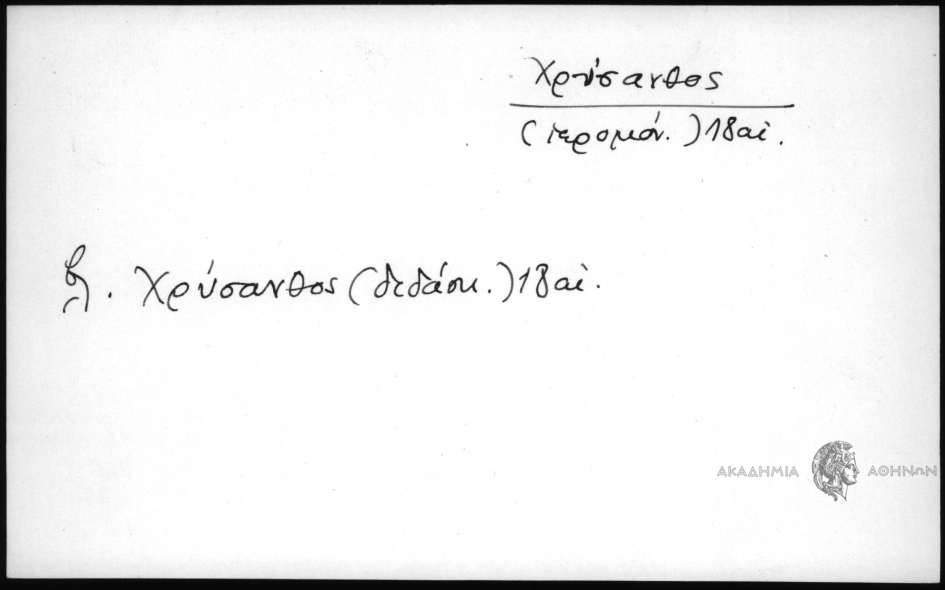 Χρύσανθος
(ιερομόν.) 18 αἰ.
βλ. Χρύσανθος (διδάσκ.) 18 αἰ.
ΑΚΑΔΗΜΙΑ ΑΘΗΝΩΝ